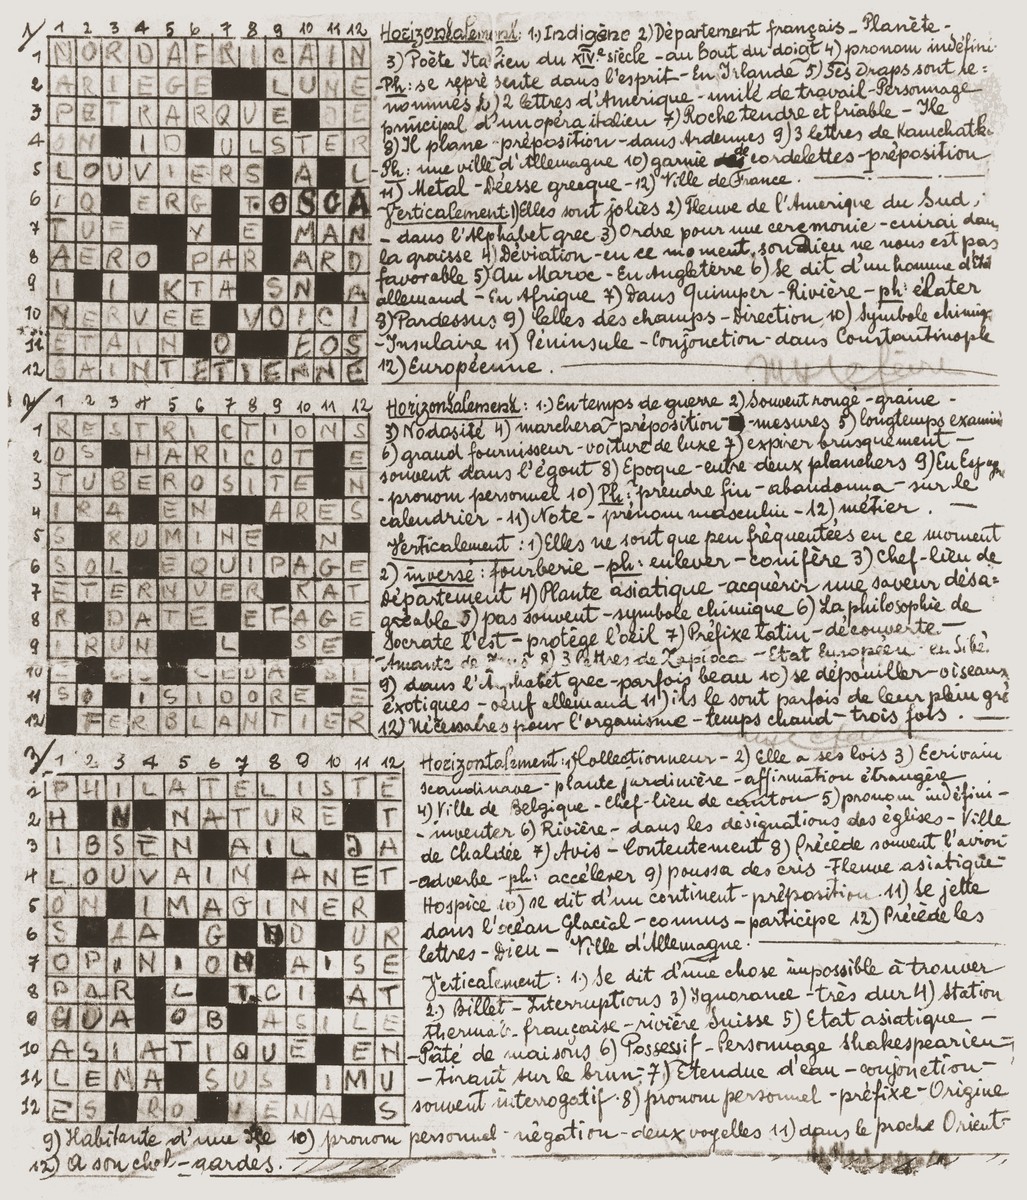 1/ 1 2 3 4 5 6 7 8 9 10 11 12
1 NORDAFRICAIN
2 ARIEGE LUNE
3 PETRARQUE DE
4 ON ID ULSTER
5 LOUVIERS A L
6 IO ERG T.OSCA
7 TUF Y E MAN
8 AERO PAR ARD
9 I I KTA SN A
10 NERVEE VOICI
11 ETAIN O EOS
12 SAINTETIENNE
Horizontalement: 1) Indigène 2) Département français - Planète -
3) Poète Italien du XIVe siècle - au bout du doigt 4) pronom indéfini
- Ph: se représente dans l'esprit - En Irlande 5) Ses draps sont re=
nommés 6) 2 lettres d'Amérique - unité de travail - Personnage
principal d'un opéra italien 7) Roche tendre et friable - Ile
8) Il plane - préposition - dans Ardennes 9) 3 lettres de Kamchatka
- Ph: une ville d'Allemagne 10) garnie de cordelettes - préposition
11) Metal - Déesse grecque - 12) Ville de France.
Verticalement: 1) Elles sont jolies 2) Fleuve de l'Amerique du Sud,
- dans l'Alphabet grec 3) Ordre pour une ceremonie - cuirai dans
la graisse 4) Déviation - en ce moment, son Dieu ne nous est pas
favorable 5) Au Maroc - En Angleterre 6) Se dit d'un homme d'Etat
allemand - En Afrique 7) Dans Quimper - Rivière - ph: élater
8) Pardessus 9) Celles des champs - Direction 10) Symbole chimiq.
- Insulaire 11) Péninsule - Conjonction - dans Constantinople
12) Européenne.
2/ 1 2 3 4 5 6 7 8 9 10 11 12
1 RESTRICTIONS
2 OS HARICOT E
3 TUBEROSITE N
4 IRA EN ARES
5 S RUMINE N
6 SOL EQUIPAGE
7 ETERNUER RAT
8 R DATE ETAGE
9 IRUN L SE
10 LEDA SI
11 SI ISIDORE E
12 FERBLANTIER
Horizontalement: 1) En temps de guerre 2) Souvent rongé - graine -
3) Nodosité 4) marchera - préposition - mesures 5) longtemps examiné
6) grand fournisseur - voiture de luxe 7) expirer brusquement -
souvent dans l'égout 8) Epoque - entre deux planchers 9) En Espagne
- pronom personnel 10) Ph: prendre fin - abandonna - sur le
calendrier - 11) Note - prénom masculin - 12) métier.
Verticalement: 1) Elles ne sont que peu fréquentées en ce moment
2) inversé: fourberie - ph: enlever - conifère 3) Chef-lieu de
Département 4) Plante asiatique - acquérir une saveur désa=
gréable 5) pas souvent - symbole chimique 6) La philosophie de
Socrate l'est - protège l'œil 7) Préfixe latin - découverte -
Amante de 8) 3 lettres de Tapioca - Etat Européen
9) dans l'Alphabet grec - parfois beau 10) se dépouiller - oiseaux
exotiques - œuf allemand 11) ils le sont parfois de leur plein gré
12) Nécessaires pour l'organisme - temps chaud - trois fois.
3/ 1 2 3 4 5 6 7 8 9 10 11 12
1 PHILATELISTE
2 H N NATURE T
3 IBSEN AIL JA
4 LOUVAIN ANET
5 ON IMAGINER
6 S AA G ND UR
7 OPINION AISE
8 PAR L ICI AT
9 HUA OB ASILE
10 ASIATIQUE EN
11 LENA SUS IMU
12 ES RO IENA S
Horizontalement: 1) Collectionneur - 2) Elle a ses lois 3) Ecrivain
scandinave - plante jardinière - affirmation étrangère
4) Ville de Belgique - Chef-lieu de canton 5) pronom indéfini -
- inventer 6) Rivière - dans les désignations des églises - Ville
de Chaldée 7) Avis - Contentement 8) Précède souvent l'avion
- adverbe - ph: accélerer 9) poussa des cris - Fleuve asiatique -
Hospice 10) se dit d'un continent - préposition 11) Se jette
dans l'océan Glacial - connus - participe 12) Précède les
lettres - Dieu - Ville d'Allemagne.
Verticalement: 1) Se dit d'une chose impossible à trouver
2) Billet - Interruptions 3) Ignorance - très dur 4) Station
thermale française - rivière Suisse 5) Etat asiatique -
- Pâté de maisons 6) Possessif - Personnage shakespearien -
- tirant sur le brun - 7) Etendue d'eau - conjonction -
souvent interrogatif 8) pronom personnel - préfixe - Origine
9) Habitante d'une Ile 10) pronom personnel - négation - deux voyelles 11) dans le proche Orient
12) A son chef - gardés.